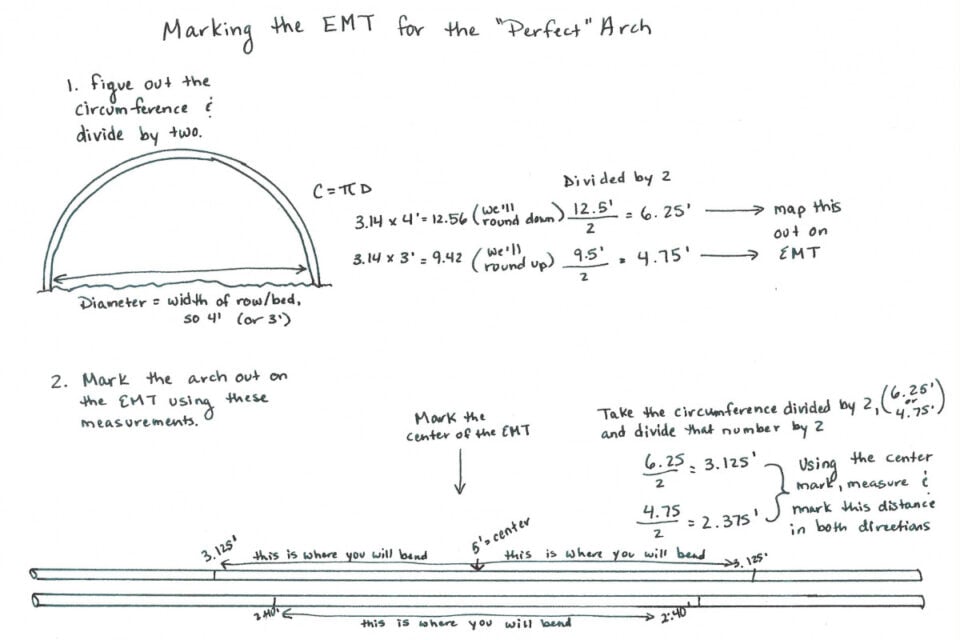 Marking the EMT for the "Perfect" Arch
1. figue out the
circumference &
divide by two.
C = π D
Divided by 2
3.14 x 4' = 12.56 (we'll round down) 12.5'/2 = 6.25' → map this
out on
EMT
3.14 x 3' = 9.42 (we'll round up) 9.5'/2 = 4.75' →
Diameter = width of row/bed,
so 4' (or 3')
2. Mark the arch out on
the EMT using these
measurements.
Mark the
center of the EMT
Take the circumference divided by 2, (6.25' or 4.75')
and divide that number by 2
6.25/2 = 3.125'
4.75/2 = 2.375'
Using the center
mark, measure &
mark this distance
in both directions
3.125' this is where you will bend 5'=center this is where you will bend 3.125'
2.40' this is where you will bend 2.40'